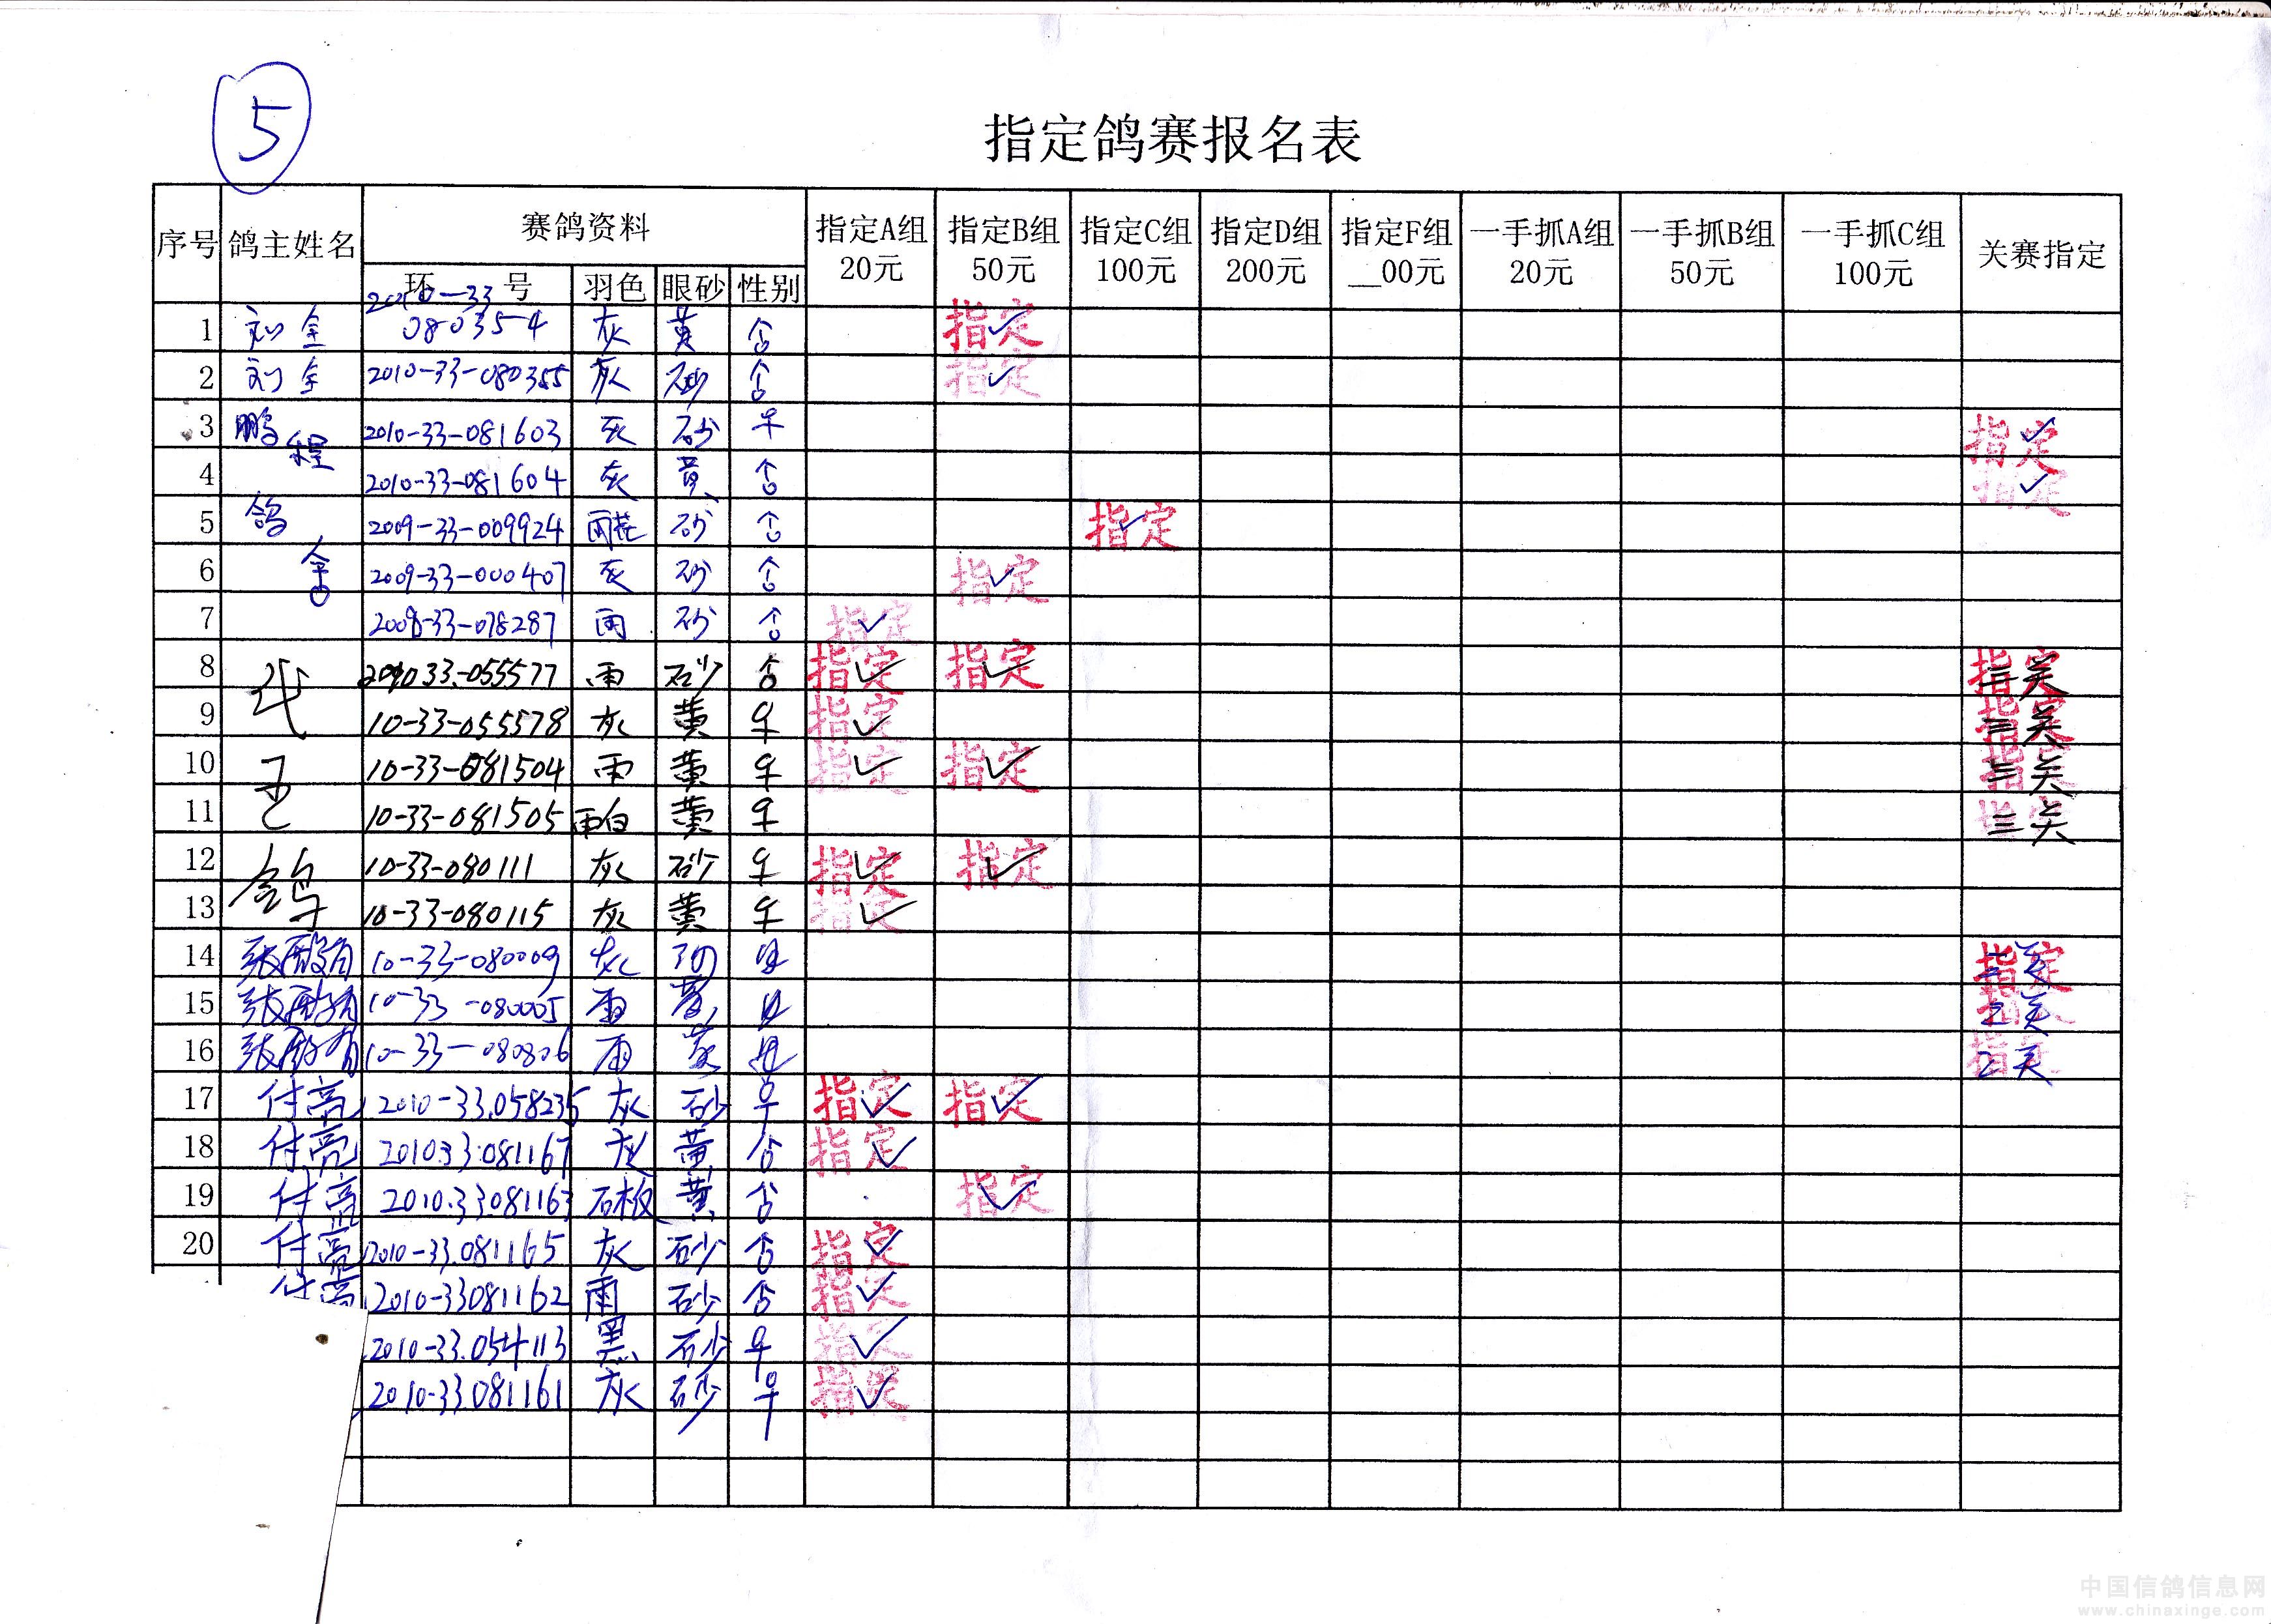 5
指定鸽赛报名表
序号 鸽主姓名 赛鸽资料 指定A组 20元 指定B组 50元 指定C组 100元 指定D组 200元 指定F组 __00元 一手抓A组 20元 一手抓B组 50元 一手抓C组 100元 关赛指定
环 号 羽色 眼砂 性别
1 刘全 2010-33 080354 灰 黄 ♂ 指定✓
2 刘全 2010-33-080355 灰 砂 ♂ 指定✓
3 鹏程 2010-33-081603 灰 砂 ♀ 指定✓
4 2010-33-081604 灰 黄 ♂ 指定✓
5 鸽 2009-33-009924 雨花 砂 ♂ 指定✓
6 舍 2009-33-000407 灰 砂 ♂ 指定✓
7 2009-33-078287 雨 砂 ♂ 指定✓
8 代 201033-055577 雨 砂 ♂ 指定✓ 指定✓ 指定 三关
9 10-33-055578 灰 黄 ♀ 指定✓ 指定 三关
10 10-33-081504 雨 黄 ♀ 指定✓ 指定✓ 指定 三关
11 10-33-081505 雨白 黄 ♀ 指定 三关
12 鸽 10-33-080111 灰 砂 ♀ 指定✓ 指定✓
13 10-33-080115 灰 黄 ♀ 指定✓
14 张 10-33-080009 灰 母 指定
15 张 10-33-080005 雨 黄 母 指定 2关
16 张 10-33-080806 雨 黄 母 指定 2关
17 付亮 2010-33.058235 灰 砂 ♀ 指定✓ 指定✓
18 付亮 2010.33.081167 灰 黄 ♂ 指定✓
19 付亮 2010.33.081163 石板 黄 ♂ 指定✓
20 付亮 2010-33.081165 灰 砂 ♂ 指定✓
付亮 2010-33081162 雨 砂 ♂ 指定✓
2010-33.054113 黑 砂 ♀ 指定✓
2010-33.081161 灰 砂 ♀ 指定✓
中国信鸽信息网
www.chinaxinge.com